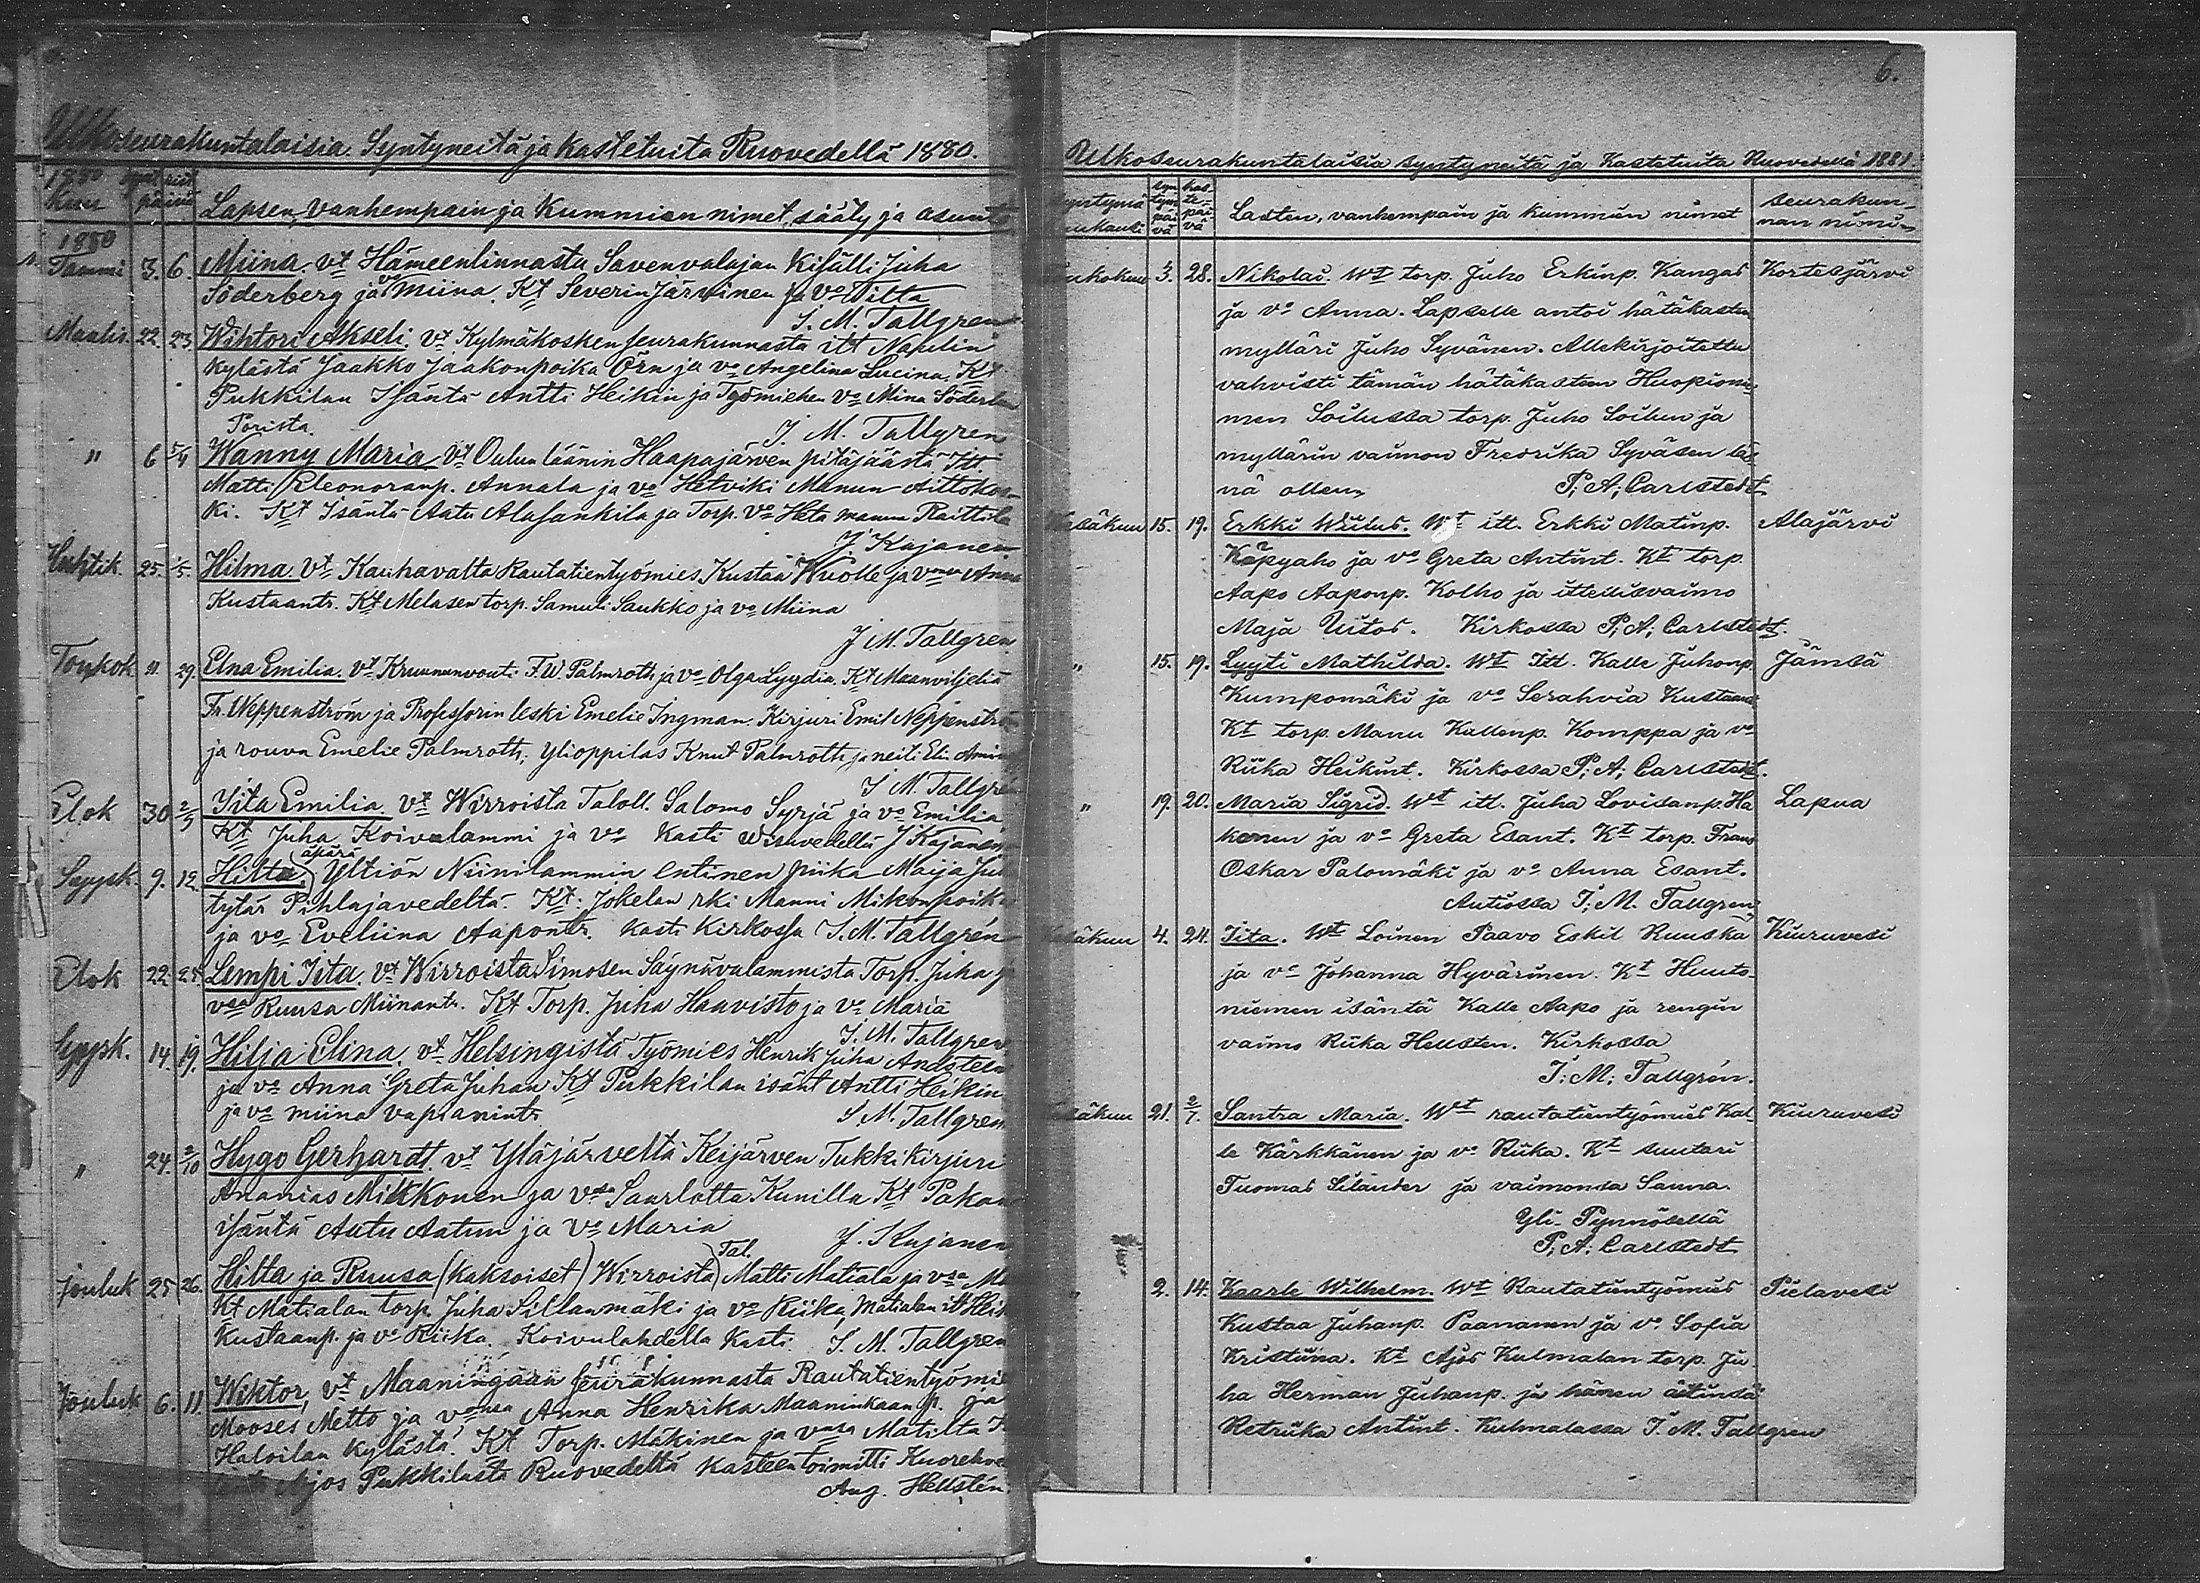 Ulkoseurakuntalaisia Syntyneitä ja kastetuita Ruovedellä 1880.
1880 Kuu päivä Lapsen, vanhempain ja Kummien nimet, sääty ja asunto
1880
Tammi 3. 6. Miina. vt Hämeenlinnasta Savenvalajan Kisälli Juha
Söderberg ja Miina. Kt Severin Järvinen ja vo Tilta
J. M. Tallgren
Maalis. 22. 23. Wihtori Akseli. vt Kylmäkosken seurakunnasta itt Naulin
kylästä Jaakko Jaakonpoika Örn ja vo Angelina Lucina. Kt
Pukkilan Isäntä Antti Heikin ja Työmiehen vo Mina
Porista.
J. M. Tallgren
" 6 Wanny Maria vt Oulun läänin Haapajärven pitäjäästä Itt.
Matti Eleonoranp. Annala ja vo Hetviki Manun Aittokos-
ki. Kt Isäntä Aatu Alasankila ja Torp. vo Heta
J. Kajanen
Huhtik. 25. 1/5. Hilma. vt Kauhavalta Rautatientyömies Kustaa Wuolle ja Anna
Kustaantr. Kt Melasen torp. Samuli Saukko ja vo Miina
J M. Tallgren
Toukok 11. 29. Elna Emilia. vt Kruununvouti F. W. Palmroth ja vo Olga Lyydia. Kt Maanviljeliä
Fr. Neppenström ja Professorin leski Emelie Ingman. Kirjuri Emil Neppenström
ja rouva Emelie Palmroth, Ylioppilas Knut Palmroth ja neiti Elin
J M. Tallgre
Elok 30 2/9 Iita Emilia vt Wirroista Taloll. Salomo Syrjä ja vo Emilia
Kt Juha Koivulammi ja vo Kasti Wisuvedellä J Kajanen
Syysk. 9. 12. Hilta. (äpärä) Yltiön Niinilammin entinen piika Maija Juh
tytär Pihlajavedeltä. Kt: Jokelan rki Manni Mikonpoika
ja vo Eveliina Aapontr. Kasti Kirkossa J. M. Tallgrén
Elok 22. Lempi Iita. vt Wirroista Simosen Säynävalammista Torp. Juha
Ruusa Miinantr. Kt Torp. Juha Haavisto ja vo Maria
J. M. Tallgren
Syysk. 14. 19. Hilja Elina. vt Helsingistä Työmies Henrik Juha Andsten
ja vo Anna Greta Juhan Kt Pukkilan isänt Antti Heikin
ja vo miina
J M. Tallgren
" 24. 2/10 Hygo Gerhardt. vt Yläjärveltä Keijärven Tukkikirjuri
Ananias Mikkonen ja Saarlotta Kunilla Kt
isäntä Aatu Aatun ja vo Maria
J. Kajanen
Jouluk 25 26. Hilta ja Ruusa (kaksoiset) Wirroista Tal. Matti Matiala ja
Kt Matialan torp Juha Sillanmäki ja vo Riika, Matialan itt
Kustaanp. ja vo Riika. Koivulahdella Kasti. J. M. Tallgren
Jouluk 6. 11. Wiktor, vt Maaningan seurakunnasta Rautatientyömi
Mooses Metto ja Anna Henrika Maaninkaan p. ja
Haloilan kylästä. Kt Torp. Mäkinen ja Matilta
Ajos Pukkilasta Ruovedeltä Kasteen toimitti
Aug. Hellstén.
6.
Ulkoseurakuntalaisia syntyneitä ja Kastetuita Ruovedellä 1881.
syntymä kuukausi syntymäpäivä kastepäivä Lasten, vanhempain ja kummien nimet seurakunnan nimi
toukokuu 3. 28. Nikolai. Wt torp. Juho Erkinp. Kangas Kortesjärvi
ja vo Anna. Lapselle antoi hätäkasten
mylläri Juho Syvänen. Allekirjoitettu
vahvisti tämän hätäkasteen Huopionie-
men Soilussa torp. Juho Soilun ja
myllärin vaimon Fredrika Syväsen läs-
nä ollen.
P; A; Carlstedt
Kesäkuu 15. 19. Erkki Wiitus. Wt itt. Erkki Matinp. Alajärvi
Käpyaho ja vo Greta Antint. Kt torp.
Aapo Aaponp. Kolho ja vaimo
Maja Uitos. Kirkossa P; A; Carlstedt.
" 15. 19. Lyyti Mathilda. Wt Itt. Kalle Juhonp. Jämsä
Kumpomäki ja vo Serahvia
Kt torp. Manu Kallenp. Komppa ja vo
Riika Heikint. Kirkossa P; A; Carlstedt.
" 19. 20. Maria Sigrid. Wt itt. Juha Lovisanp. Ha Lapua
konen ja vo Greta Esant. Kt torp. Frans
Oskar Palomäki ja vo Anna Esant.
Autiossa J; M. Tallgren
Kesäkuu 4. 24. Iita. Wt Loinen Paavo Eskil Ruuska Kiuruvesi
ja vo Johanna Hyvärinen. Kt Huuto-
niemen isäntä Kalle Aapo ja rengin
vaimo Riika Hellsten. Kirkossa
J: M; Tallgrén.
Kesäkuu 21. 2/7. Santra Maria. Wt rautatientyömies Kal- Kiuruvesi
le Kärkkänen ja vo Riika. Kt suutari
Tuomas Silander ja vaimonsa Sanna.
Yli-Pynnösellä
P; A; Carlstedt
" 2. 14. Kaarle Wilhelm. Wt Rautatientyömies Pielavesi
Kustaa Juhanp. Paananen ja vo Sofia
Kristiina. Kt Ajos Kulmalan torp. Ju-
ha Herman Juhanp. ja hänen äitinsä
Retriika Antint. Kulmalassa J. M. Tallgren